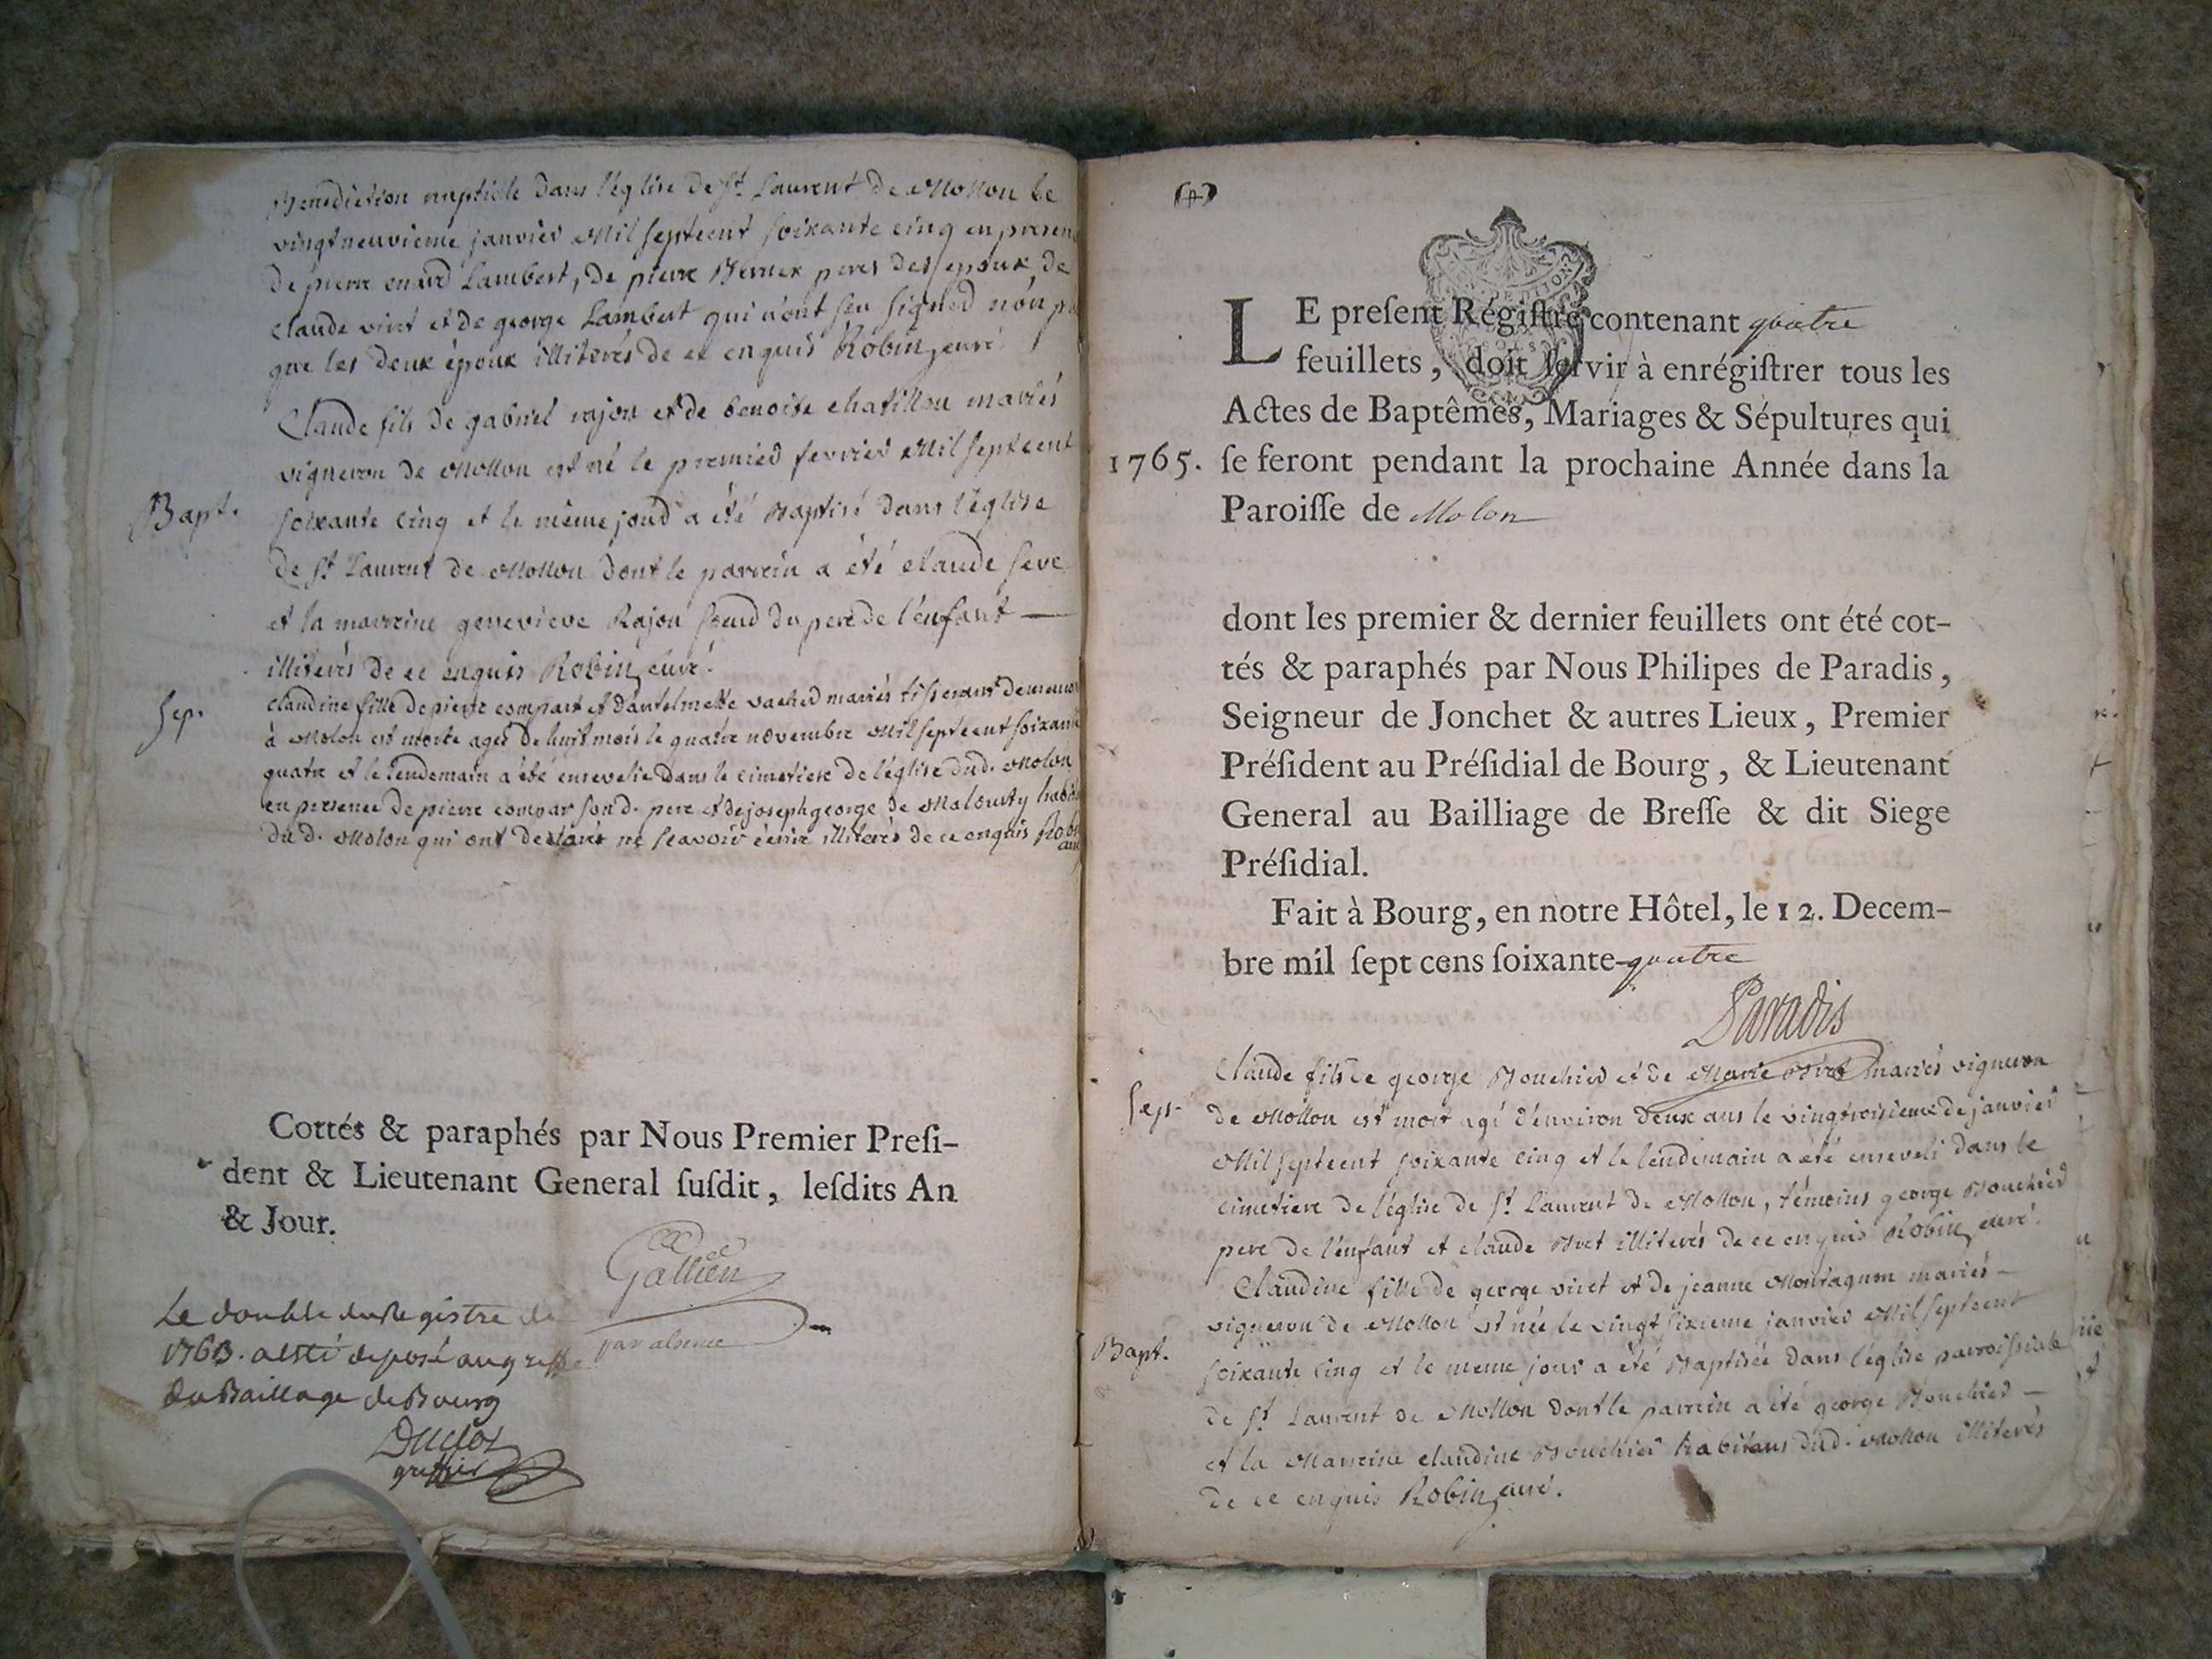 Benediction nuptiale dans l'église de St. Laurent de Mollon le
vingt neuvieme janvier Mil septcent soixante cinq en presen
de pierre enard Lambert, de pierre peres des epoux, de
claude viret et de george Lambert qui n'ont seu signer non p
que les deux époux illiterés de ce enquis Robin, curé.
Claude fils de gabriel rajon et de benoite chatillon mariés
vigneron de Mollon est né le premier fevrier Mil septcent
Bapt.
soixante cinq et le même jour a été Baptisé dans l'église
de St. Laurent de Mollon dont le parrein a été claude seve
et la marreine genevieve Rajon soeur du pere de l'enfant —
illiterés de ce enquis Robin, curé.
Sep.
claudine fille de pierre compart et d'antelmette vacher mariés tisserant demeura
à Molon est morte agée de huit mois le quatre novembre Mil septcent soixante
quatre et le lendemain a été ensevelie dans le cimetiere de l'église dud. Molon
en presence de pierre compar son d. pere et de joseph george de habita
du d. Molon qui ont declaré ne scavoir écrire illiterés de ce enquis Robin
Cottés & paraphés par Nous Premier Presi-
dent & Lieutenant General susdit, lesdits An
& Jour.
Gallien
par absence
Le double du Registre de
1763. a esté deposé au greffe
du Baillage de Bourg
Duclos
greffier
LE present Régistre contenant quatre
feuillets, doit servir à enrégistrer tous les
Actes de Baptêmes, Mariages & Sépultures qui
1765. se feront pendant la prochaine Année dans la
Paroisse de Molon
dont les premier & dernier feuillets ont été cot-
tés & paraphés par Nous Philipes de Paradis,
Seigneur de Jonchet & autres Lieux, Premier
Président au Présidial de Bourg, & Lieutenant
General au Bailliage de Bresse & dit Siege
Présidial.
Fait à Bourg, en notre Hôtel, le 12. Decem-
bre mil sept cens soixante-quatre
Paradis
Claude fils de george Bouchier et de Marie Bret mariés vigneron
Sep.
de Mollon est mort agé d'environ deux ans le vingtroisieme de janvier
Mil septcent soixante cinq et le lendemain a été enseveli dans le
cimetiere de l'église de St. Laurent de Mollon, témoins george Bouchier
pere de l'enfant et claude Bret illiterés de ce enquis Robin, curé.
Claudine fille de george viret et de jeanne Montagnon mariés —
vigneron de Mollon est née le vingt sixieme janvier Mil septcent
Bapt.
soixante cinq et le meme jour a été Baptisée dans l'église parroissiale
de St. Laurent de Mollon dont le parrein a été george Bouchier —
et la Marreine claudine Bouchier habitans dud. Mollon illiterés
de ce enquis Robin, curé.